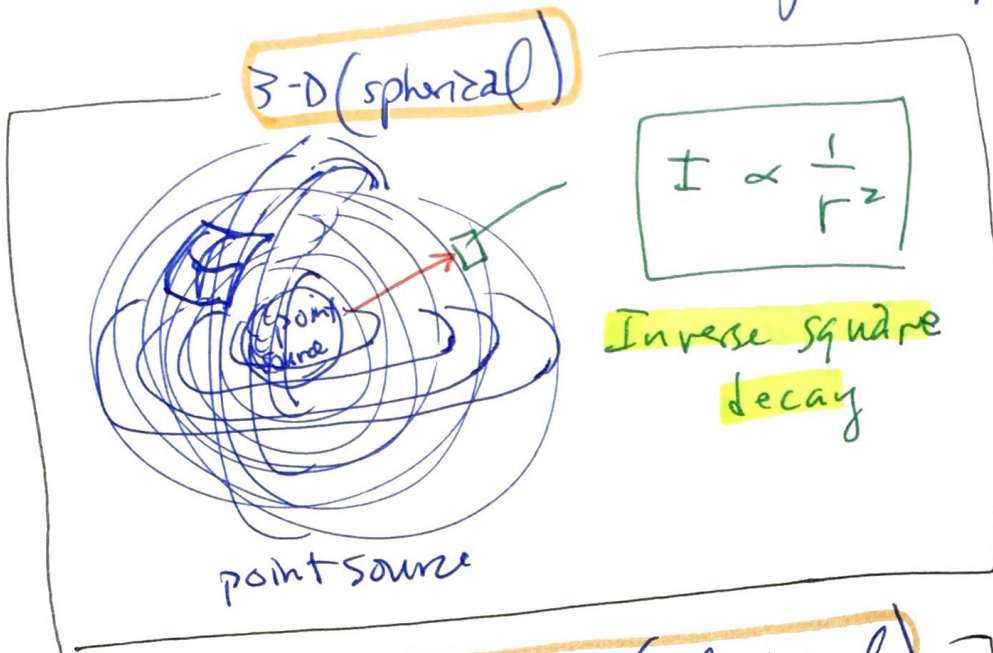 3-D (spherical)
I ∝ 1/r²
point
source
Inverse square
decay
point source